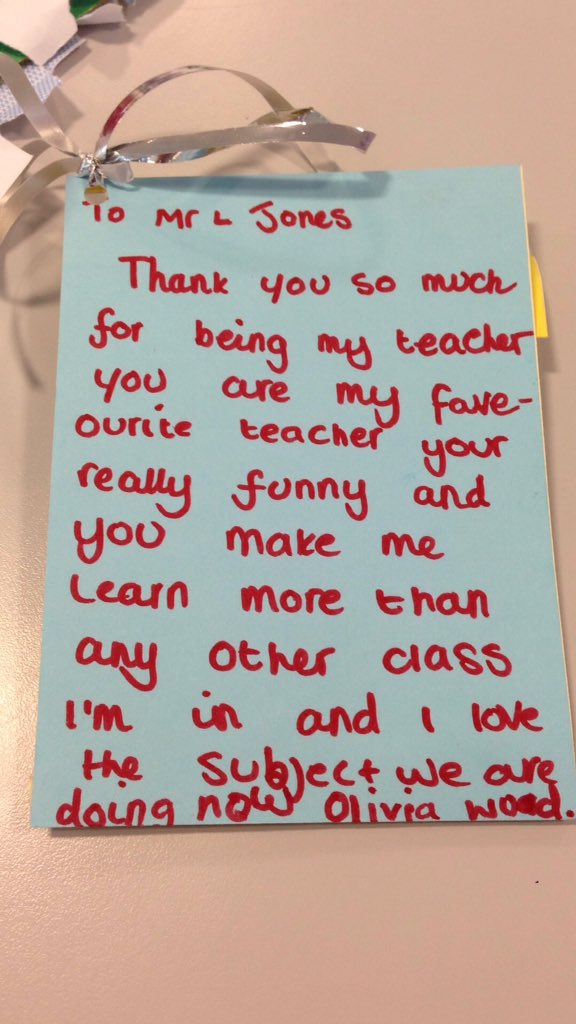 To Mr L Jones
Thank you so much
for being my teacher
you are my fave-
ourite teacher your
really funny and
you make me
learn more than
any other class
I'm in and I love
the subject we are
doing now Olivia wood.